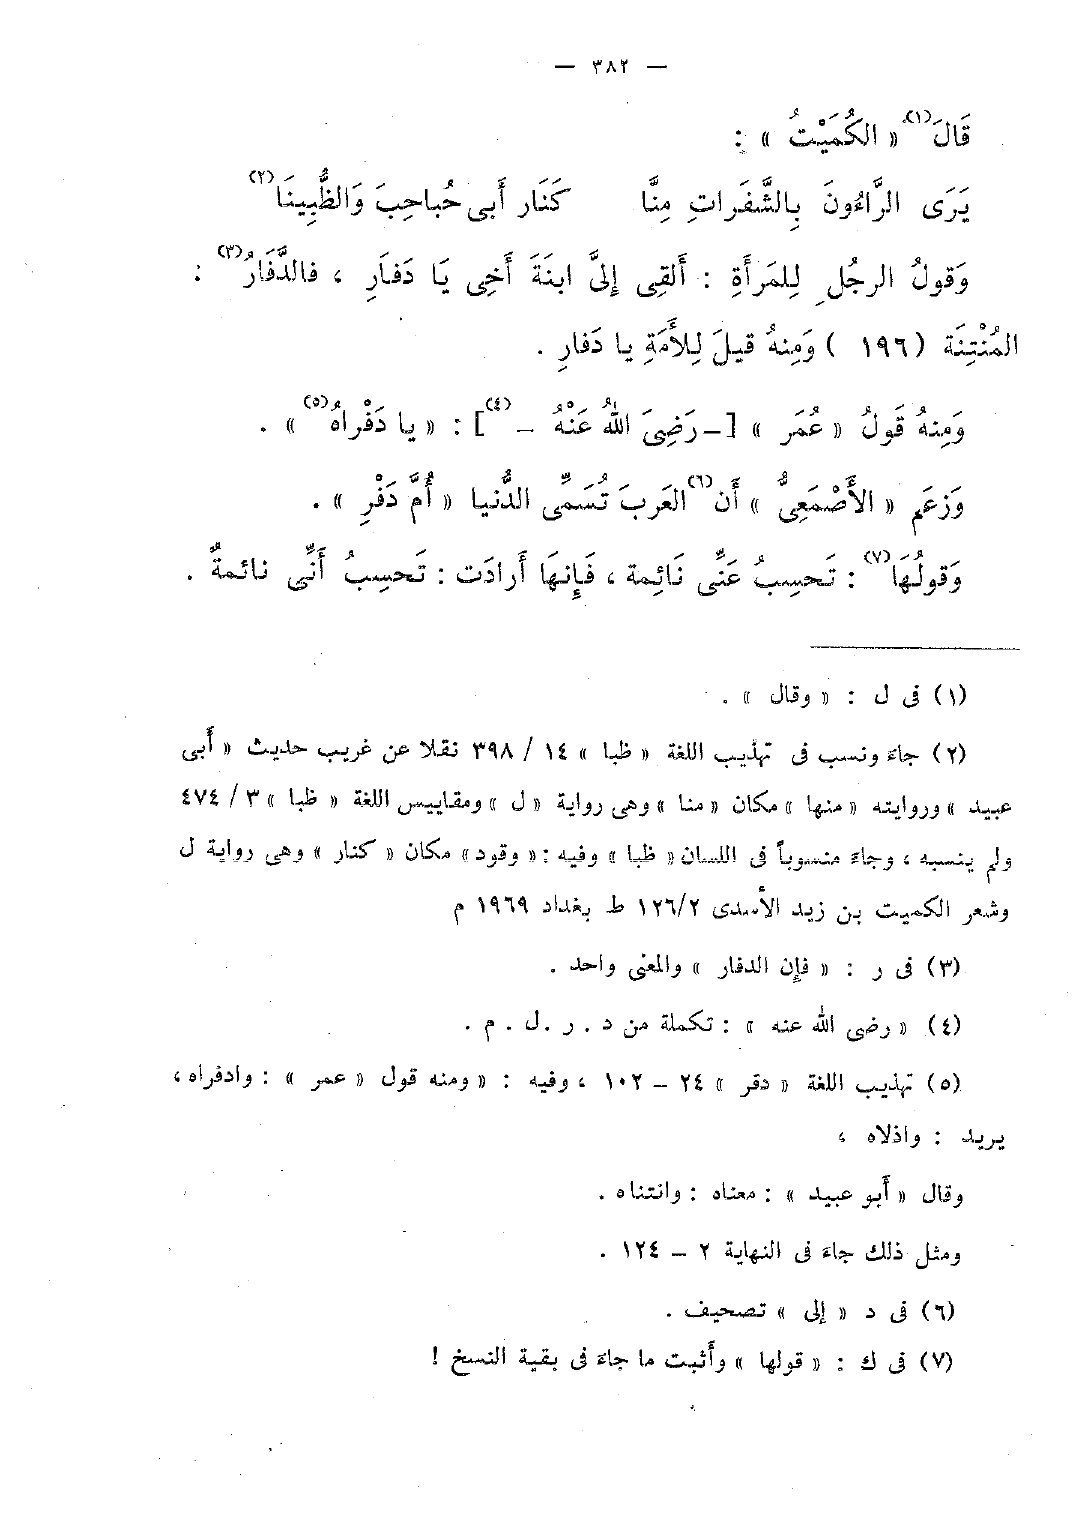 — ٣٨٢ —
قَالَ(١) « الكُمَيْتُ » :
يَرَى الرَّاءُونَ بِالشَّفَرَاتِ مِنَّا كَنَار أَبى حُباحِبَ وَالظُّبِينَا(٢)
وَقولُ الرجُلِ لِلمَرأَةِ : أَلقِى إِلىَّ ابنَةَ أَخِى يَا دَفَارِ ، فالدَّفَارُ(٣) :
المُنْتِنَة (١٩٦ ) وَمِنهُ قيلَ لِلأَمَةِ يا دَفارِ .
وَمِنهُ قَولُ « عُمَر » [–رَضِىَ اللهُ عَنْهُ –(٤)] : « يا دَفْراهُ(٥) » .
وَزعَم « الأَصْمَعِىُّ » أَن(٦) العَربَ تُسَمِّى الدُّنيا « أُمَّ دَفْرِ » .
وَقولُهَا(٧) : تَحسِبُ عَنِّى نَائِمة ، فَإِنهَا أَرادَت : تَحسِبُ أَنِّى نائمةٌ .
(١) فى ل : « وقال » .
(٢) جاءَ ونسب فى تهذيب اللغة « ظبا » ١٤ / ٣٩٨ نقلا عن غريب حديث « أَبى
عبيد » وروايته « منها » مكان « منا » وهى رواية « ل » ومقاييس اللغة « ظبا » ٣ / ٤٧٤
ولم ينسبه ، وجاءَ منسوباً فى اللسان « ظبا » وفيه : « وقود » مكان « كنار » وهى رواية ل
وشعر الكميت بن زيد الأَسدى ١٢٦/٢ ط بغداد ١٩٦٩ م
(٣) فى ر : « فإن الدفار » والمعنى واحد .
(٤) « رضى الله عنه » : تكملة من د . ر . ل . م .
(٥) تهذيب اللغة « دقر » ٢٤ – ١٠٢ ، وفيه : « ومنه قول « عمر » : وادفراه ،
يريد : واذلاه ،
وقال « أَبو عبيد » : معناه : وانتناه .
ومثل ذلك جاءَ فى النهاية ٢ – ١٢٤ .
(٦) فى د « إلى » تصحيف .
(٧) فى ك : « قولها » وأَثبت ما جاءَ فى بقية النسخ !